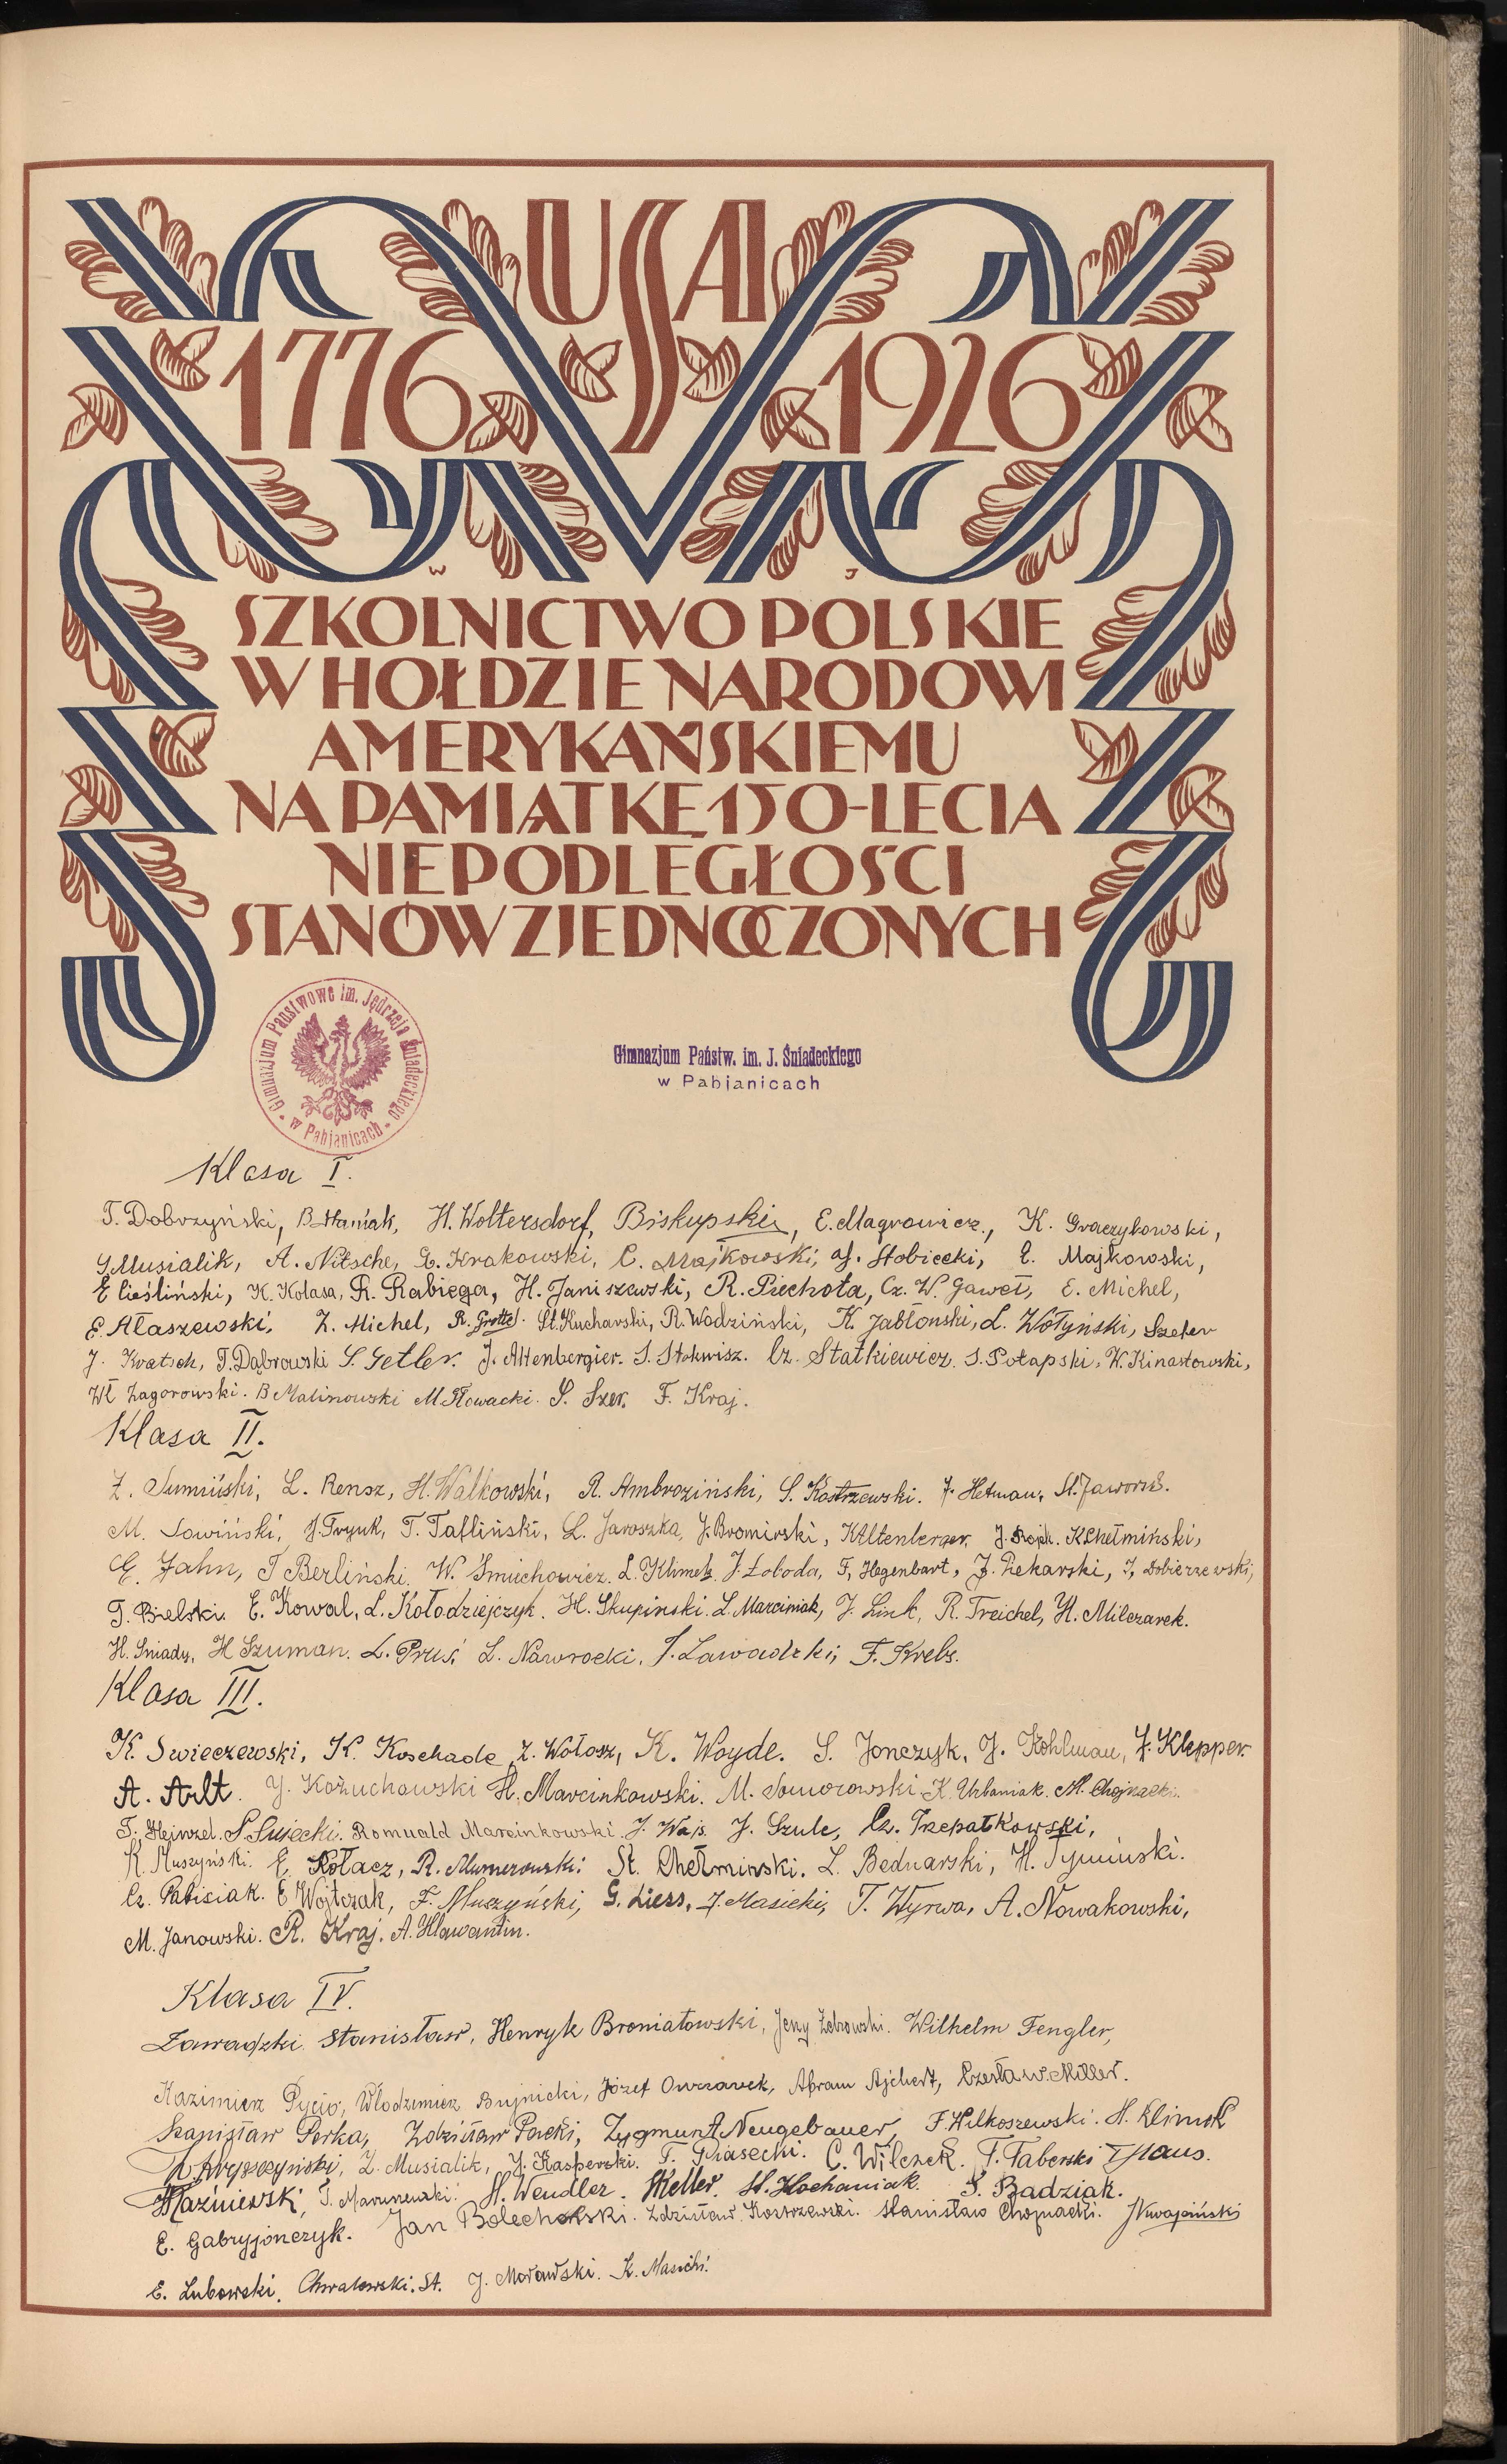 USA
1776 1926
W J
SZKOLNICTWO POLSKIE
W HOŁDZIE NARODOWI
AMERYKAŃSKIEMU
NA PAMIĄTKĘ 150-LECIA
NIEPODLEGŁOŚCI
STANÓW ZJEDNOCZONYCH
Gimnazjum Państwowe im. Jędrzeja Śniadeckiego w Pabjanicach
Gimnazjum Państw. im. J. Śniadeckiego
w Pabjanicach
Klasa I.
T. Dobrzyński, B. Staniak, H. Woltersdorf, Biskupski, E. Magrowicz, K. Graczykowski,
S. Musialik, A. Nitsche, L. Krakowski, C. Majkowski, J. Stobiecki, E. Majkowski,
E Cieśliński, K. Kolasa, R. Rabiega, H. Janiszewski, R. Piechota, Cz. W. Gaweł, E. Michel,
E. Ałaszewski, Z. Michel, R. Grottel. St. Kucharski, R. Wodziński, K. Jabłoński, L. Wołyński, Szefer
J. Kratsch, T. Dąbrowski S. Getler. J. Altenbergier. S. Stokwisz. Cz. Statkiewicz. S. Potapski, W. Kinastowski,
Wł Zagorowski. B Malinowski M. Słowacki. S. Szer. F. Kraj.
Klasa II.
Z. Sumiński, L. Rensz, H. Walkowski, R. Ambroziński, S. Kostrzewski. J. Hetman, St. Jaworski.
M. Łowiński, J. Tryuk, T. Tafliński, L. Jaroszka, J. Bromirski, K. Altenberger. K. Chełmiński,
E. Jahn, T Berliński. W. Śmiechowicz. L. Klimek J. Łoboda, F. Hegenbart, J. Piekarski, J. Dobierzewski,
T. Bielski. E. Kowal, L. Kołodziejczyk. H. Skupiński. L. Marciniak, J. Link, R. Treichel, H. Milczarek.
H. Śniady, H Szuman. L. Pruś, L. Nawrocki, J. Zawadzki, F. Krebs.
Klasa III.
K. Swieczewski, K. Koschade, Z. Wołosz, K. Woyde. S. Jonczyk, J. Kohlman, J. Klepper.
A. Arlt. J. Kożuchowski H. Marcinkowski. M. Domorowski K. Urbaniak. M. Chojnacki.
T. Hejnzel. S. Susecki. Romuald Marcinkowski J. Wajs. J. Szulc, Cz. Trepałkowski,
K. Muszyński. E. Kołacz, R. Mumerowski. St. Chełmiński. L. Bednarski, H. Tymiński.
Cz. Pabisiak. E Wojtczak, F. Muszyński, G. Liess, J. Masicki, T. Wyrwa, A. Nowakowski,
M. Janowski. R. Kraj. A. Hlawantin.
Klasa IV.
Zawadzki Stanisław, Henryk Broniatowski, Jerzy Żebrowski. Wilhelm Fengler,
Kazimierz Pycio, Włodzimierz Bujnicki, Józef Owczarek, Abram Ajchert, Czesław Miller.
Stanisław Perka, Zdzisław Packi, Zygmunt Neugebauer, F. Wilkoszewski. H. Klimek
Z. Musialik, J. Kasperski. F. Piasecki. C. Wilczek. F. Faberski T Haus.
Kaźniewski, T. Maruszewski. H. Wendler. Keller. St. Kochaniak. S. Badziak.
E. Gabryjończyk. Jan Bolechowski. Zdzisław Kostrzewski. Stanisław Chojnacki. J Kwajciński
E. Lubowski, Chwałowski. St. J. Morawski. K. Masicki.